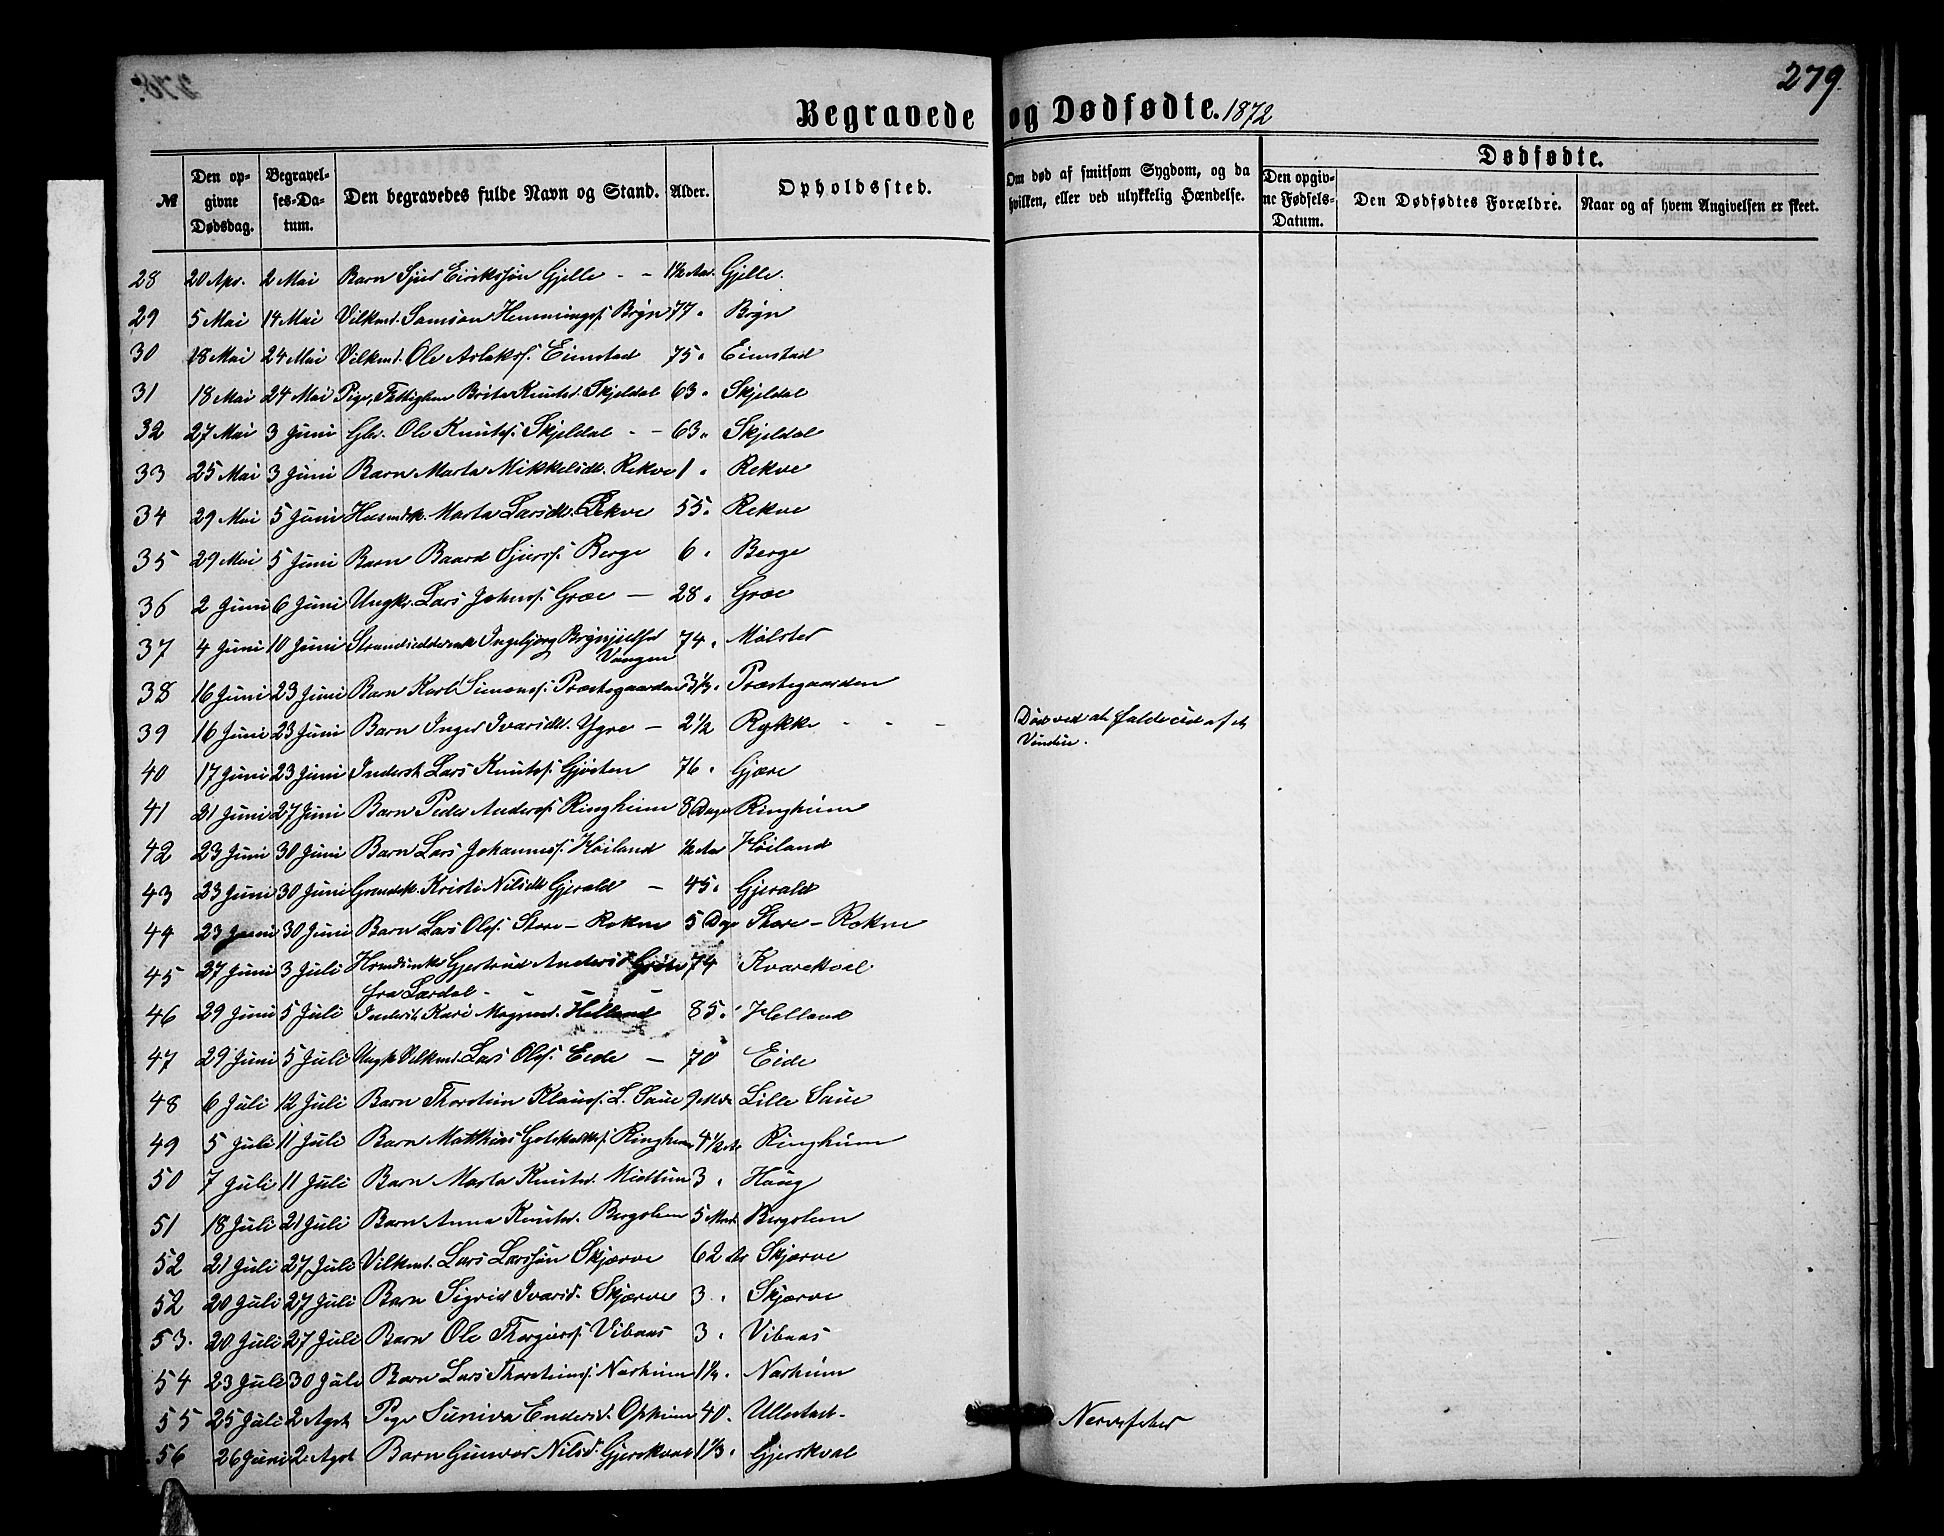 279.
Begravede og Dødfødte. 1872
№ Den opgivne Dødsdag. Begravelses-Datum. Den begravedes fulde Navn og Stand. Alder. Opholdssted. Om død af smitsom Sygdom, og da hvilken, eller ved ulykkelig Hændelse. Dødfødte. Den opgivne Fødsels-Datum. Den Dødfødtes Forældre. Naar og af hvem Angivelsen er skeet.
28 20 Apr. 2 Mai Barn Sjur Eirikssøn Gjelle - - 1½ Aar. Gjelle.
29 5 Mai 14 Mai Vilkmd. Samson Hemmingss. Bøyn 77. Bøyn
30 18 Mai 24 Mai Vilkmd. Ole Aslakss. Eimstad 75. Eimstad
31 18 Mai 24 Mai Pige, Fattiglem Brita Knutsd. Skjeldal 63. Skjeldal
32 27 Mai 3 Juni Gbr. Ole Knutss. Skjeldal - - 63. Skjeldal
33 25 Mai 3 Juni Barn Marta Mikkelsdt. Rekve 1. Rekve
34 29 Mai 5 Juni Husmdsk. Marta Larsdt. Rekve 55. Rekve
35 29 Mai 5 Juni Barn Baard Sjurss. Berge 6. Berge
36 2 Juni 6 Juni Ungk. Lars Johnss. Græe - 28. Græe
37 4 Juni 10 Juni Ingebjørg Brynjulfsd. Vangen 74. Mølster
38 16 Juni 23 Juni Barn Karl Simonss. Præstegaarden 3⅓. Præstegaarden
39 16 Juni 23 Juni Barn Inger Ivarsdt. Ygre - 2½ Rokke - - - Død ved at falde ud af et Vindue.
40 17 Juni 23 Juni Inderst Lars Knutss. Gjøsten 76. Gjære
41 21 Juni 27 Juni Barn Peder Anderss. Ringheim 8 Dage Ringheim
42 23 Juni 30 Juni Barn Lars Johanness. Høiland ½ Aar Høiland
43 23 Juni 30 Juni Grmdsk. Kristi Nilsdt. Gjerald - 45. Gjerald
44 23 Juni 30 Juni Barn Lars Olss. Store-Rokne 5 Dage Store-Rokne
45 27 Juni 3 Juli Gjertrud Andersd. fra Lærdal - - - 74 Kvarekval
46 29 Juni 5 Juli Inderstk. Kari Magnesd. Helland 85. Helland
47 29 Juni 5 Juli Ungk. Vilkmd. Lars Olss. Eide - 70 Eide
48 6 Juli 12 Juli Barn Thorstein Klauss. L. Saue 9 Mdr. Lille Saue
49 5 Juli 11 Juli Barn Matthias Ringheim 4½ Aar Ringheim
50 7 Juli 11 Juli Barn Marta Knutsd. Midttun 3. Haug
51 18 Juli 21 Juli Barn Anna Knutsd. Bergslem 5 Mdr. Bergslem
52 21 Juli 27 Juli Vilkmd. Lars Larssøn Skjærve 62 Aar Skjærve
52 20 Juli 27 Juli Barn Sigrid Ivarsd. Skjærve 3. Skjærve
53. 20 Juli 27 Juli Barn Ole Thorgierss. Vibaas 3. Vibaas
54 23 Juli 30 Juli Barn Lars Thorsteinss. Narheim Narheim
55 25 Juli 2 Agst Pige Suniva Endersd. Opheim 40. Ullestad. Nervefeber
56 26 Juni 2 Agst Barn Gunvor Nilsd. Gjerskval 1⅓. Gjerskval